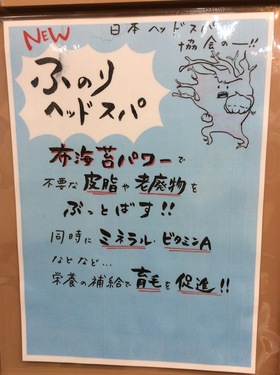 NEW
日本ヘッドスパ
協会の一!!
ふのり
ヘッドスパ
布海苔パワーで
不要な皮脂や老廃物を
ぶっとばす!!
同時にミネラル・ビタミンA
などなど…
栄養の補給で育毛を促進!!